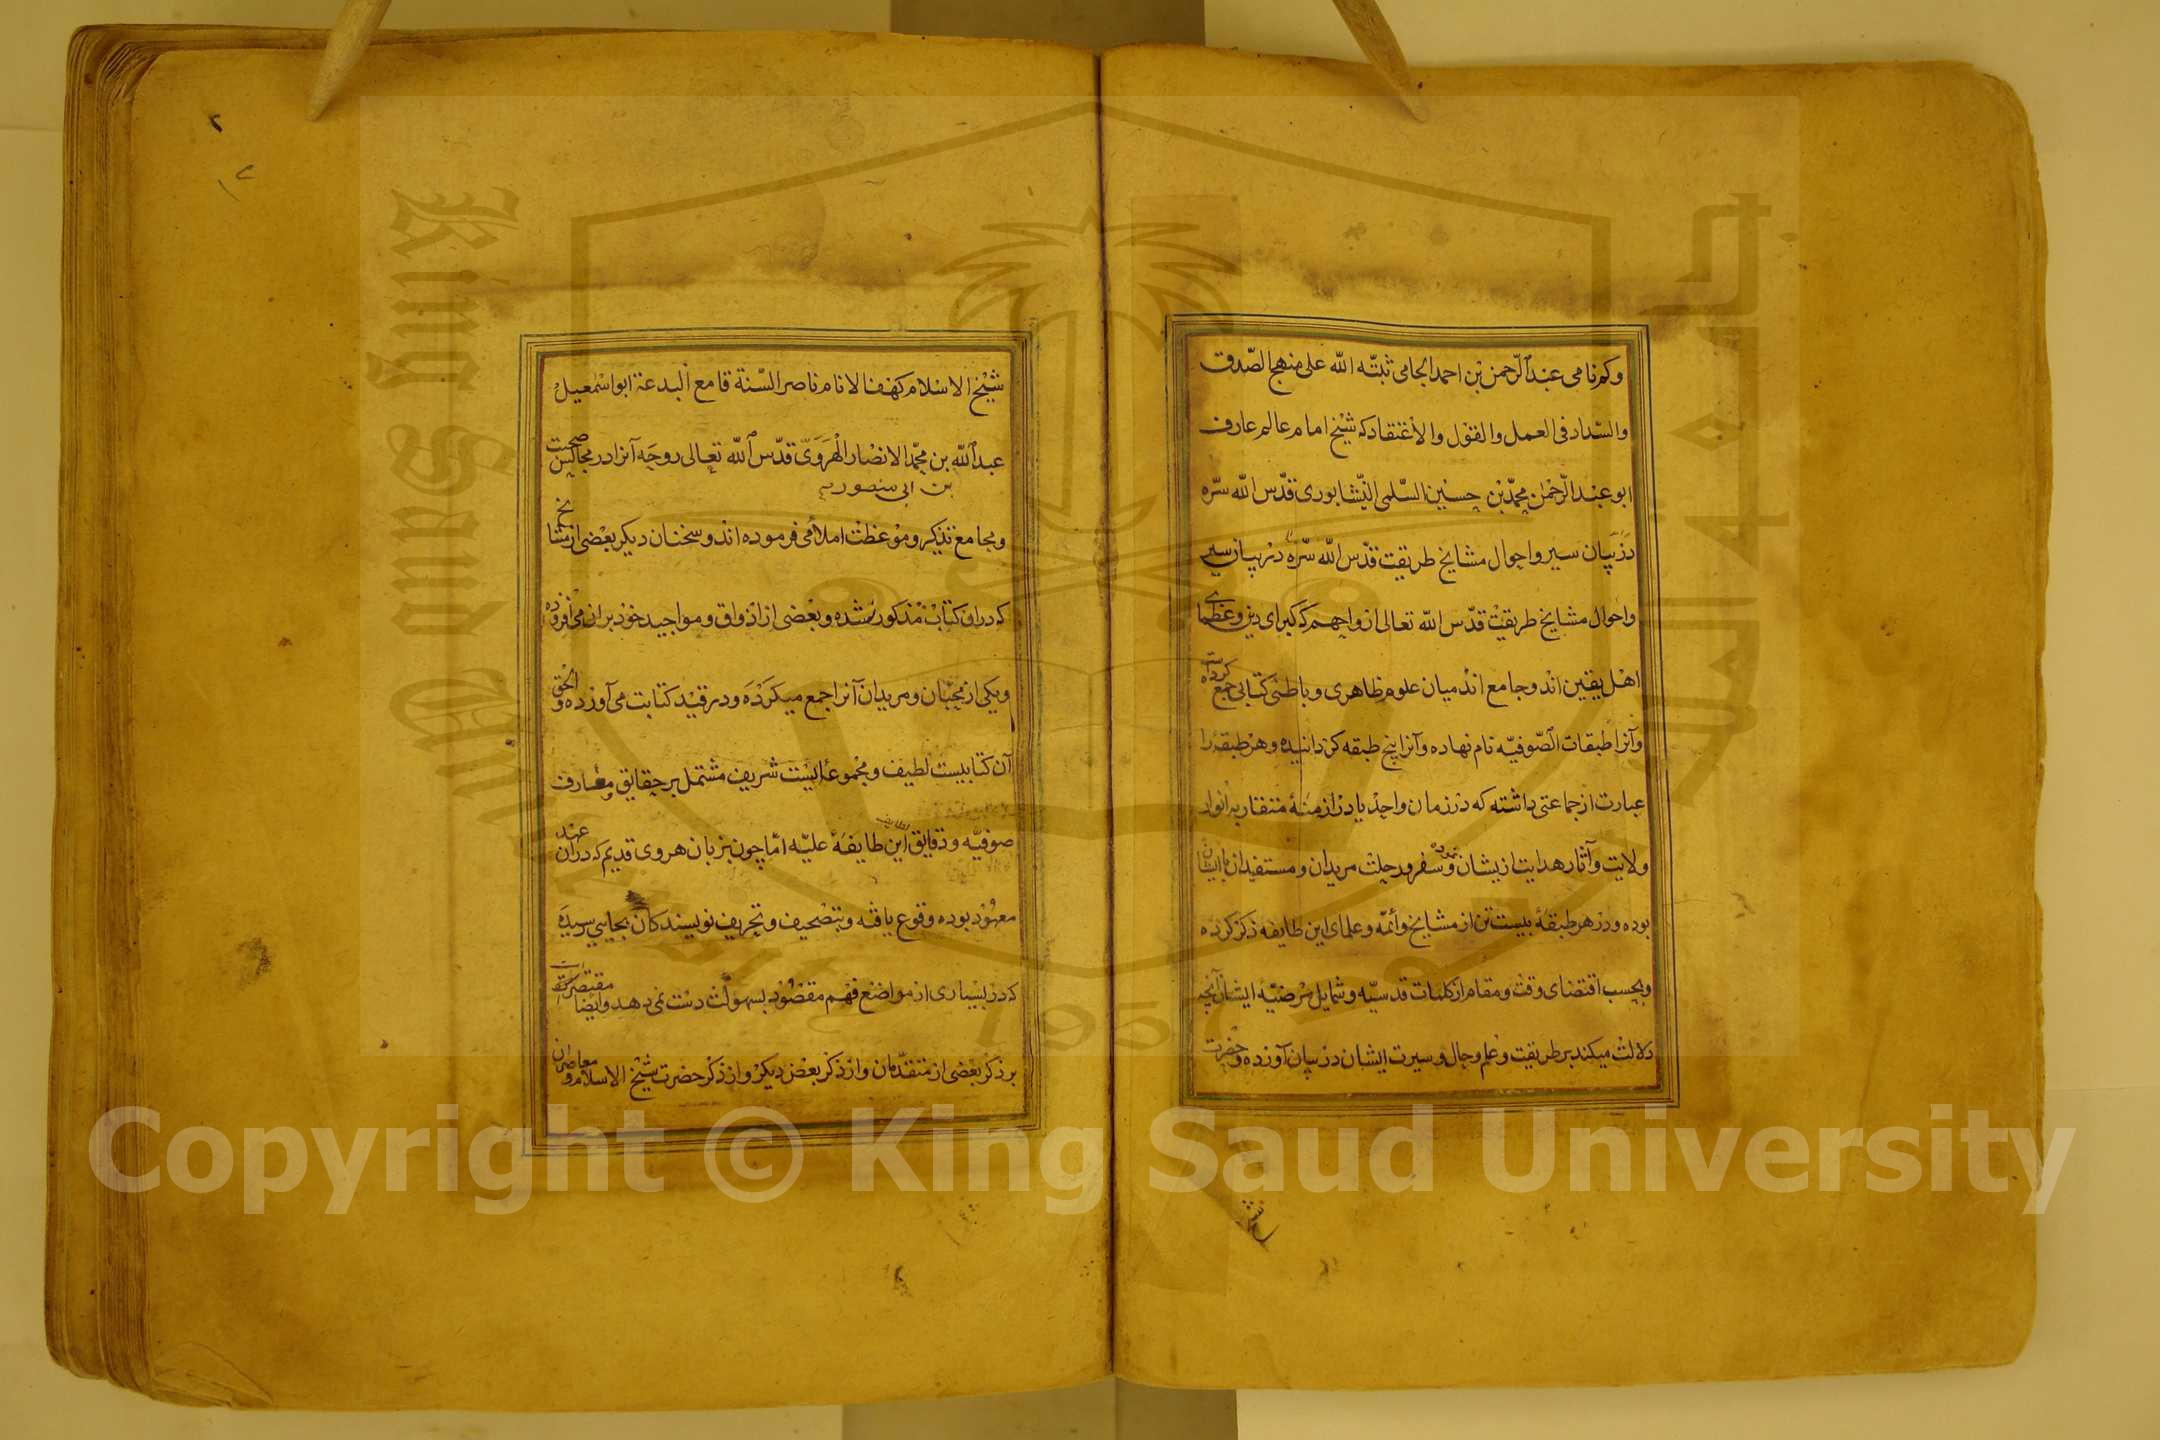 وکم نامی عبد الرّحمن بن احمد الجامی ثبّته الله علی منهج الصّدق
والسّداد فی العمل والقول والاعتقاد که شیخ امام عالم عارف
ابو عبد الرّحمن محمّد بن حسین السّلمی النّیشابوری قدّس الله سرّه
در بیان سیر و احوال مشایخ طریقت قدّس الله سرّه در بیان سیر
واحوال مشایخ طریقت قدّس الله تعالی ارواحهم که کبرای دین و عظمای
اهل یقین اند و جامع اند میان علوم ظاهری و باطنی کتابی جمع کرده است
وآنرا طبقات الصّوفیّه نام نهاده و آنرا پنج طبقه کردانیده و هر طبقه را
عبارت از جماعتی داشته که در زمان واحد یا در ازمنهٔ متقاربه انوار
ولایت و آثار هدایت ازیشان نموده و سفر و رحلت مریدان و مستفیدان بایشان
بوده و در هر طبقهٔ بیست تن از مشایخ و أئمّه و علمای این طایفه ذکر کرده
وبحسب اقتضای وقت و مقام از کلمات قدسیّه و شمایل مرضیّه ایشان آنچه
دلالت میکند بر طریقت و علم و حال و سیرت ایشان در بیان آورده و حضرت
شیخ
۲
شیخ الاسلام کهف الانام ناصر السّنة قامع البدعة ابو اسمعیل
عبد الله بن محمّد الانصار الهرویّ قدّس الله تعالی روحه آنرا در مجالس صحبت
بن ابی منصور
ومجامع تذکیر و موعظت املا می فرموده اند و سخنان دیکر بعضی از مشایخ
که در ان کتاب مذکور نشده و بعضی از اذواق و مواجید خود بران می افزوده
ویکی از محبّان و مریدان آنرا جمع میکرده و در قید کتابت می آورده و الحق
آن کتابیست لطیف و مجموعه ایست شریف مشتمل بر حقایق و معارف
صوفیّه و دقایق لطایف این طایفهٔ علیّه امّا چون بزبان هروی قدیم که دران عهد
معهود بوده وقوع یافته و بتصحیف و تحریف نویسندکان بجایی رسیده
که در بسیاری از مواضع فهم مقصود بسهولت دست نمی دهد وایضا مقتصر است
بر ذکر بعضی از متقدّمان و از ذکر بعض دیکر و از ذکر حضرت شیخ الاسلام و معاصران
King Saud University
1957
Copyright © King Saud University